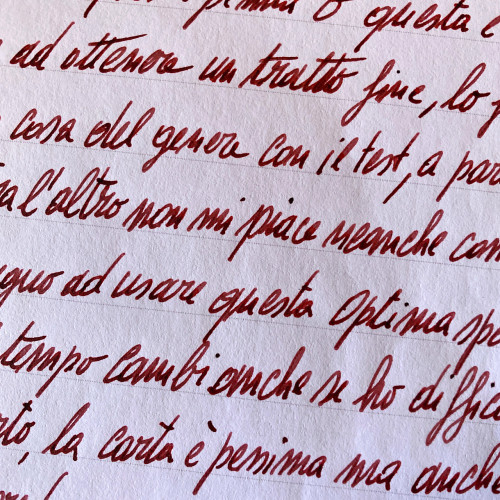 questa è
ad ottenere un tratto fine, lo
cosa del genere con il test, a par
l'altro non mi piace neanche com
ad usare questa Optima spo
tempo cambi anche se ho diffic
la carta è pessima ma anche